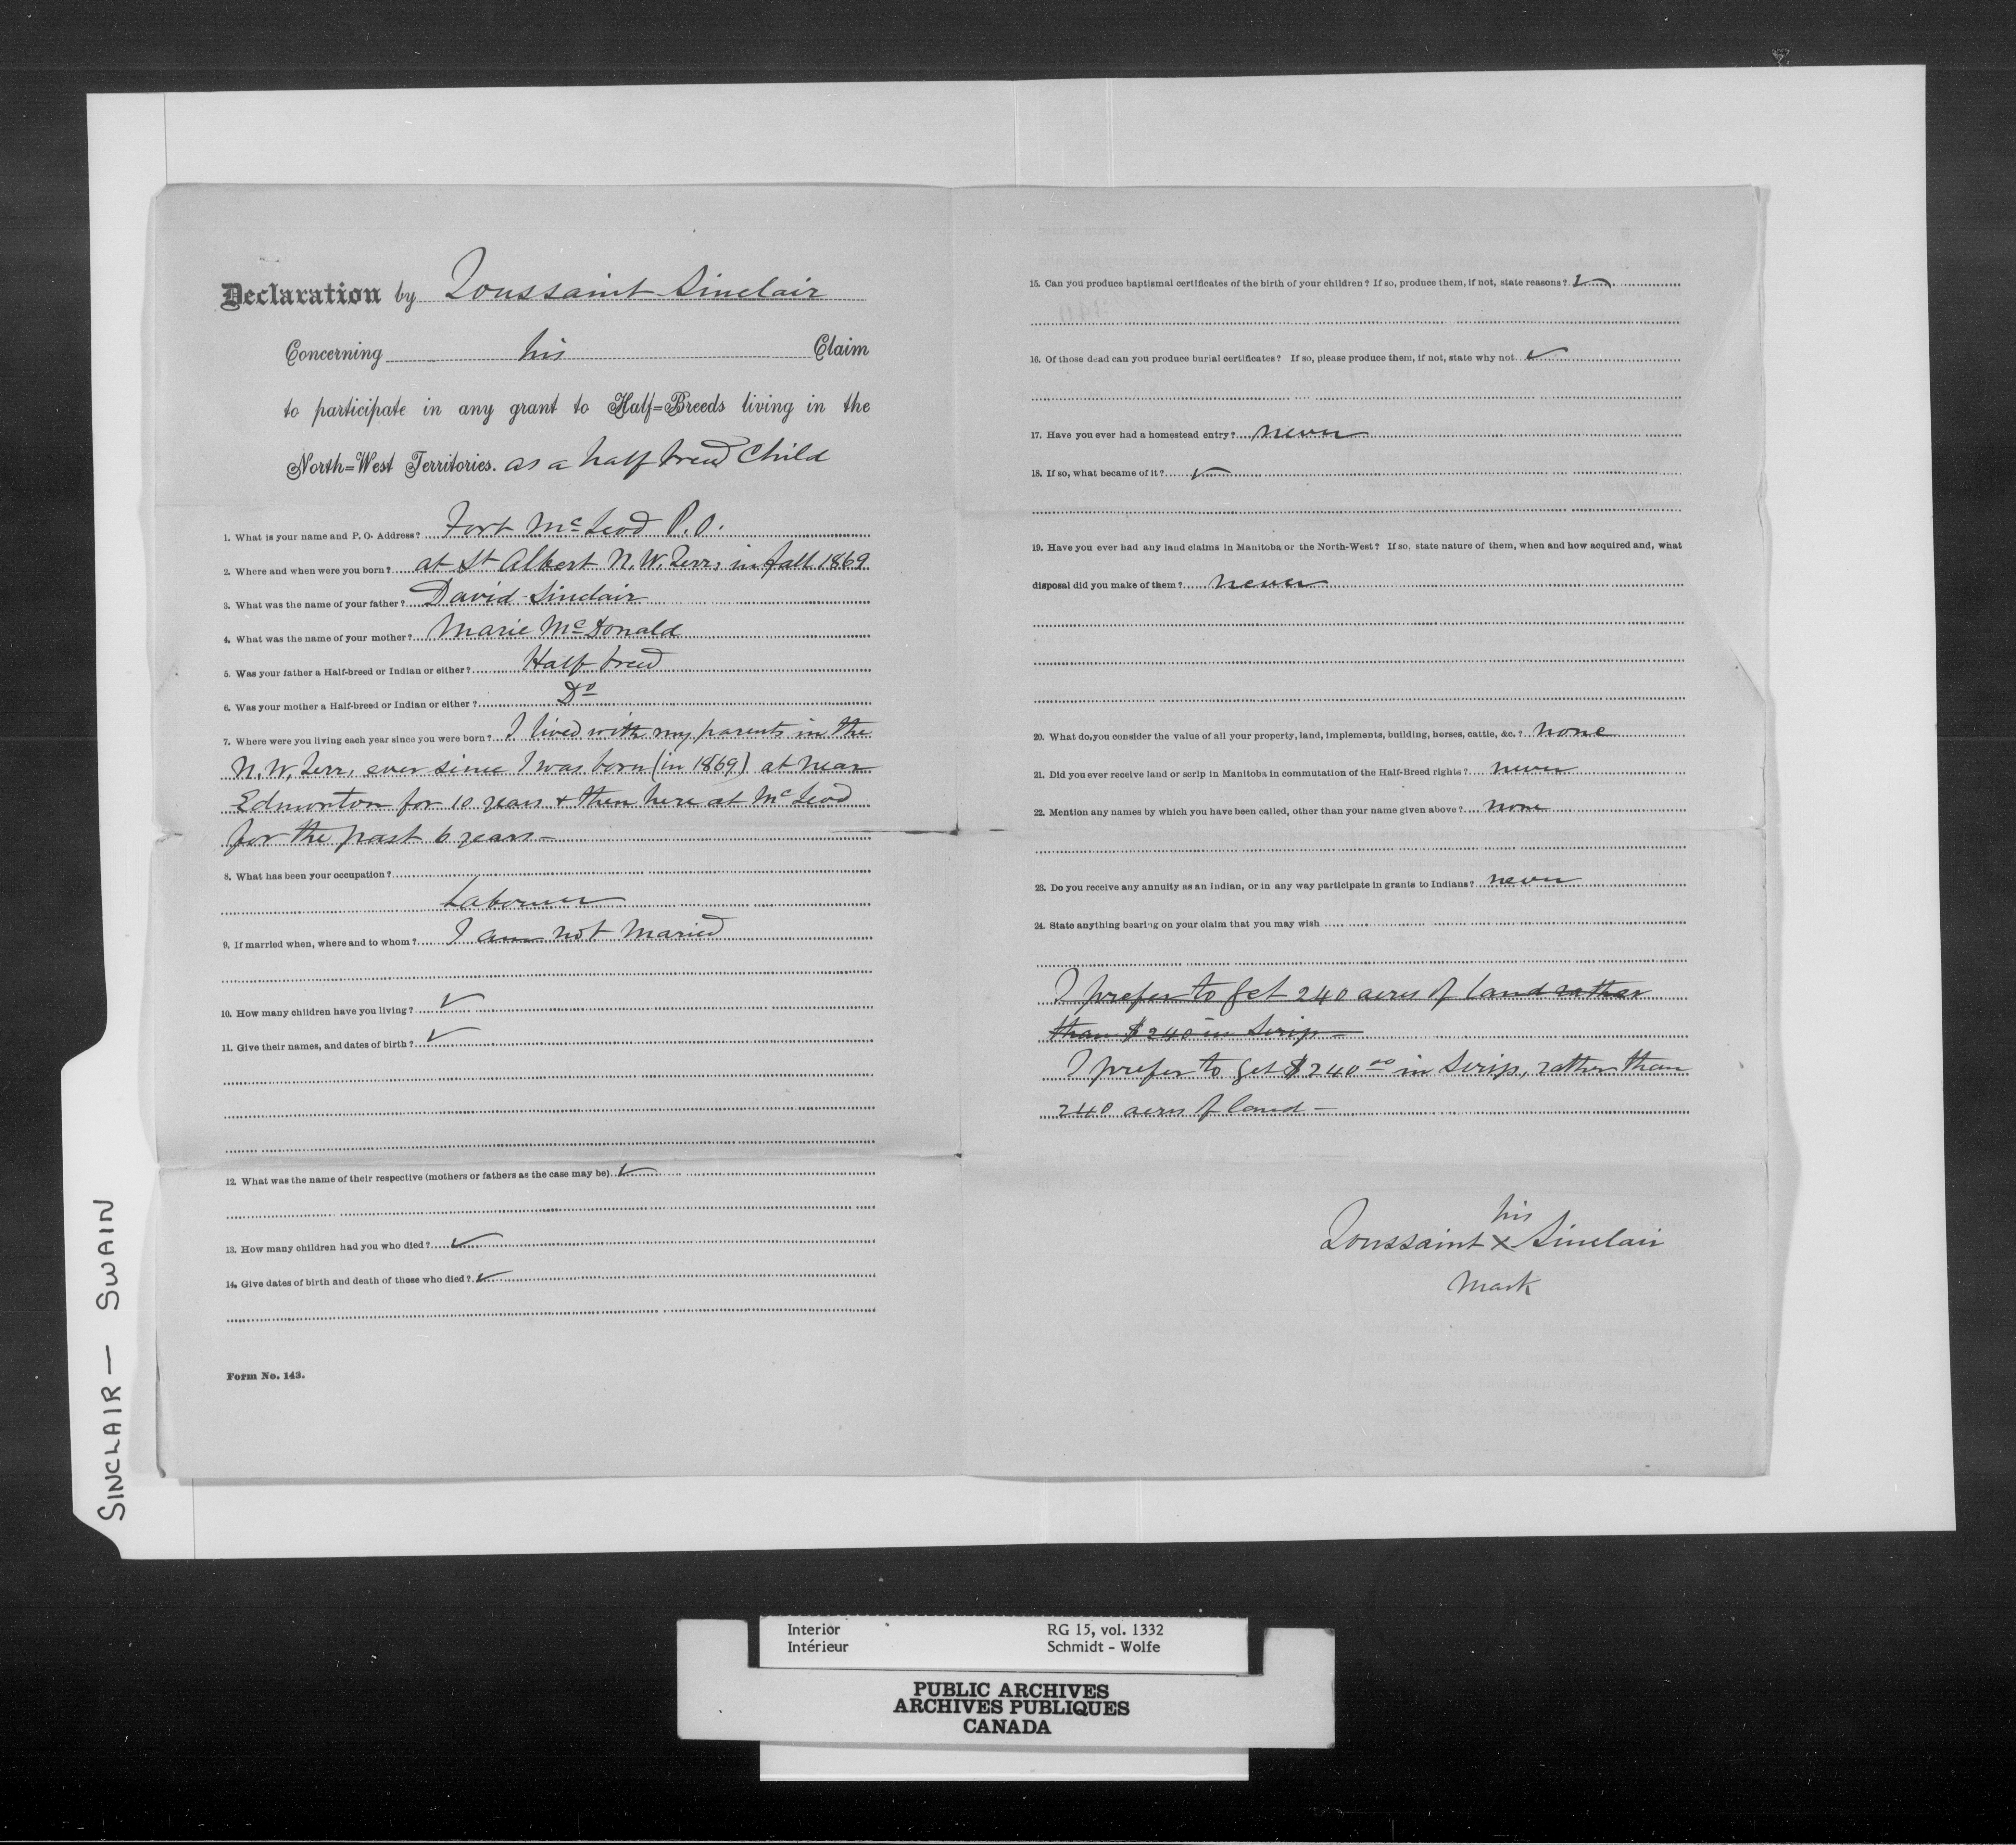 Declaration by Toussaint Sinclair
Concerning his Claim
to participate in any grant to Half=Breeds living in the
North=West Territories. as a half breed Child
1. What is your name and P. O. Address? Fort McLeod P.O.
2. Where and when were you born? at St Albert N.W. Terr, in fall 1869
3. What was the name of your father? David Sinclair
4. What was the name of your mother? Marie McDonald
5. Was your father a Half-breed or Indian or either? Half breed
6. Was your mother a Half-breed or Indian or either? Do
7. Where were you living each year since you were born? I lived with my parents in the
N.W. Terr, ever since I was born (in 1869) at near
Edmonton for 10 years + then here at McLeod
for the past 6 years -
8. What has been your occupation?
Laborer
9. If married when, where and to whom? I am not Maried
10. How many children have you living? ✓
11. Give their names, and dates of birth? ✓
12. What was the name of their respective (mothers or fathers as the case may be) ✓
13. How many children had you who died? ✓
14. Give dates of birth and death of those who died? ✓
Form No. 143.
15. Can you produce baptismal certificates of the birth of your children? If so, produce them, if not, state reasons? ✓
16. Of those dead can you produce burial certificates? If so, please produce them, if not, state why not. ✓
17. Have you ever had a homestead entry? never
18. If so, what became of it? ✓
19. Have you ever had any land claims in Manitoba or the North-West? If so, state nature of them, when and how acquired and, what
disposal did you make of them? never
20. What do you consider the value of all your property, land, implements, building, horses, cattle, &c.? none
21. Did you ever receive land or scrip in Manitoba in commutation of the Half-Breed rights? never
22. Mention any names by which you have been called, other than your name given above? none
23. Do you receive any annuity as an Indian, or in any way participate in grants to Indians? never
24. State anything bearing on your claim that you may wish
I prefer to get 240 acres of land rather
than $240 in Scrip -
I prefer to get $240.00 in Scrip, rather than
240 acres of land -
his
Toussaint x Sinclair
Mark
SINCLAIR — SWAIN
Interior RG 15, vol. 1332
Intérieur Schmidt - Wolfe
PUBLIC ARCHIVES
ARCHIVES PUBLIQUES
CANADA